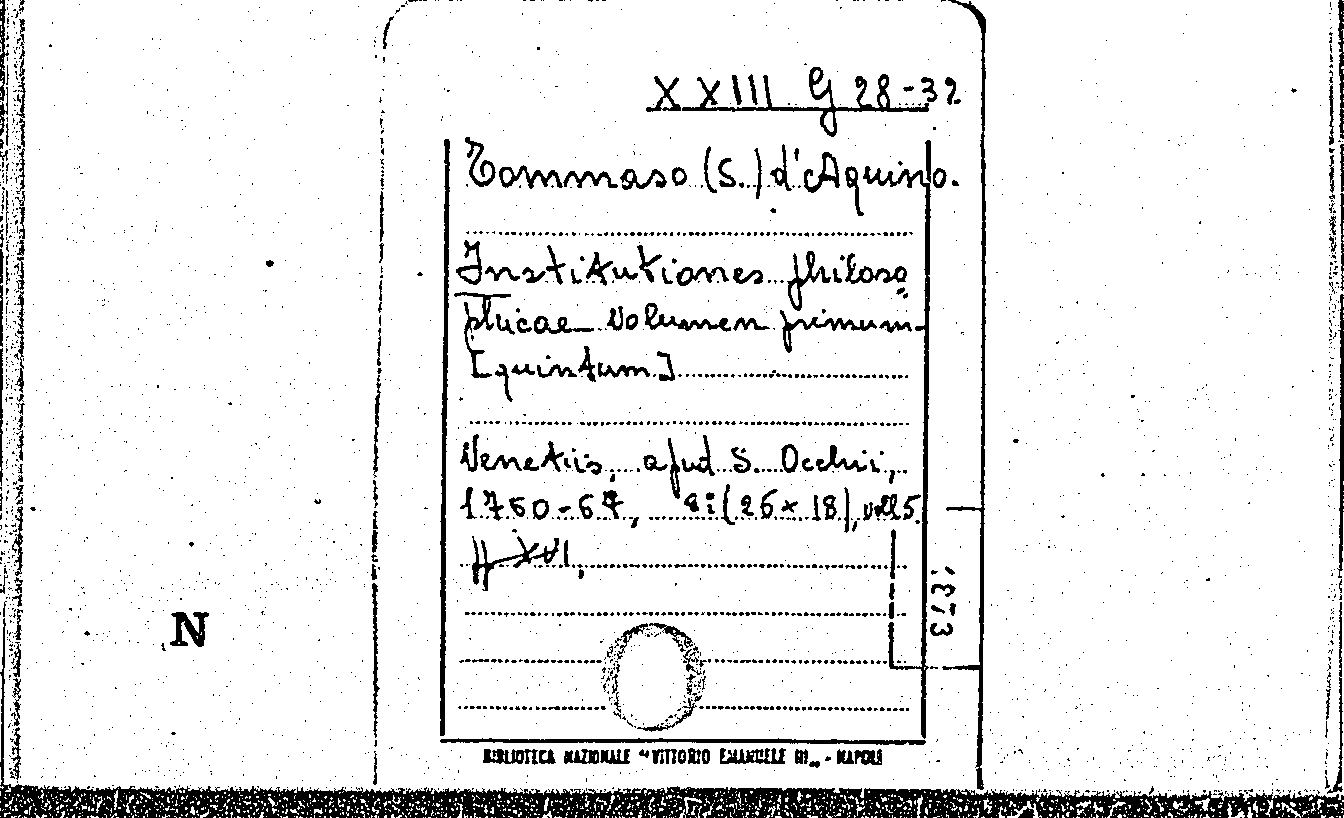 XXIII G 28-32
Tommaso (S.) d'Aquino.
Institutiones philoso=
phicae Volumen primum-
[quintum]
Venetiis, apud S. Occhi,
1760-67, 8: (26×18), voll 5.
1873
N
BIBLIOTECA NAZIONALE "VITTORIO EMANUELE III„ - NAPOLI